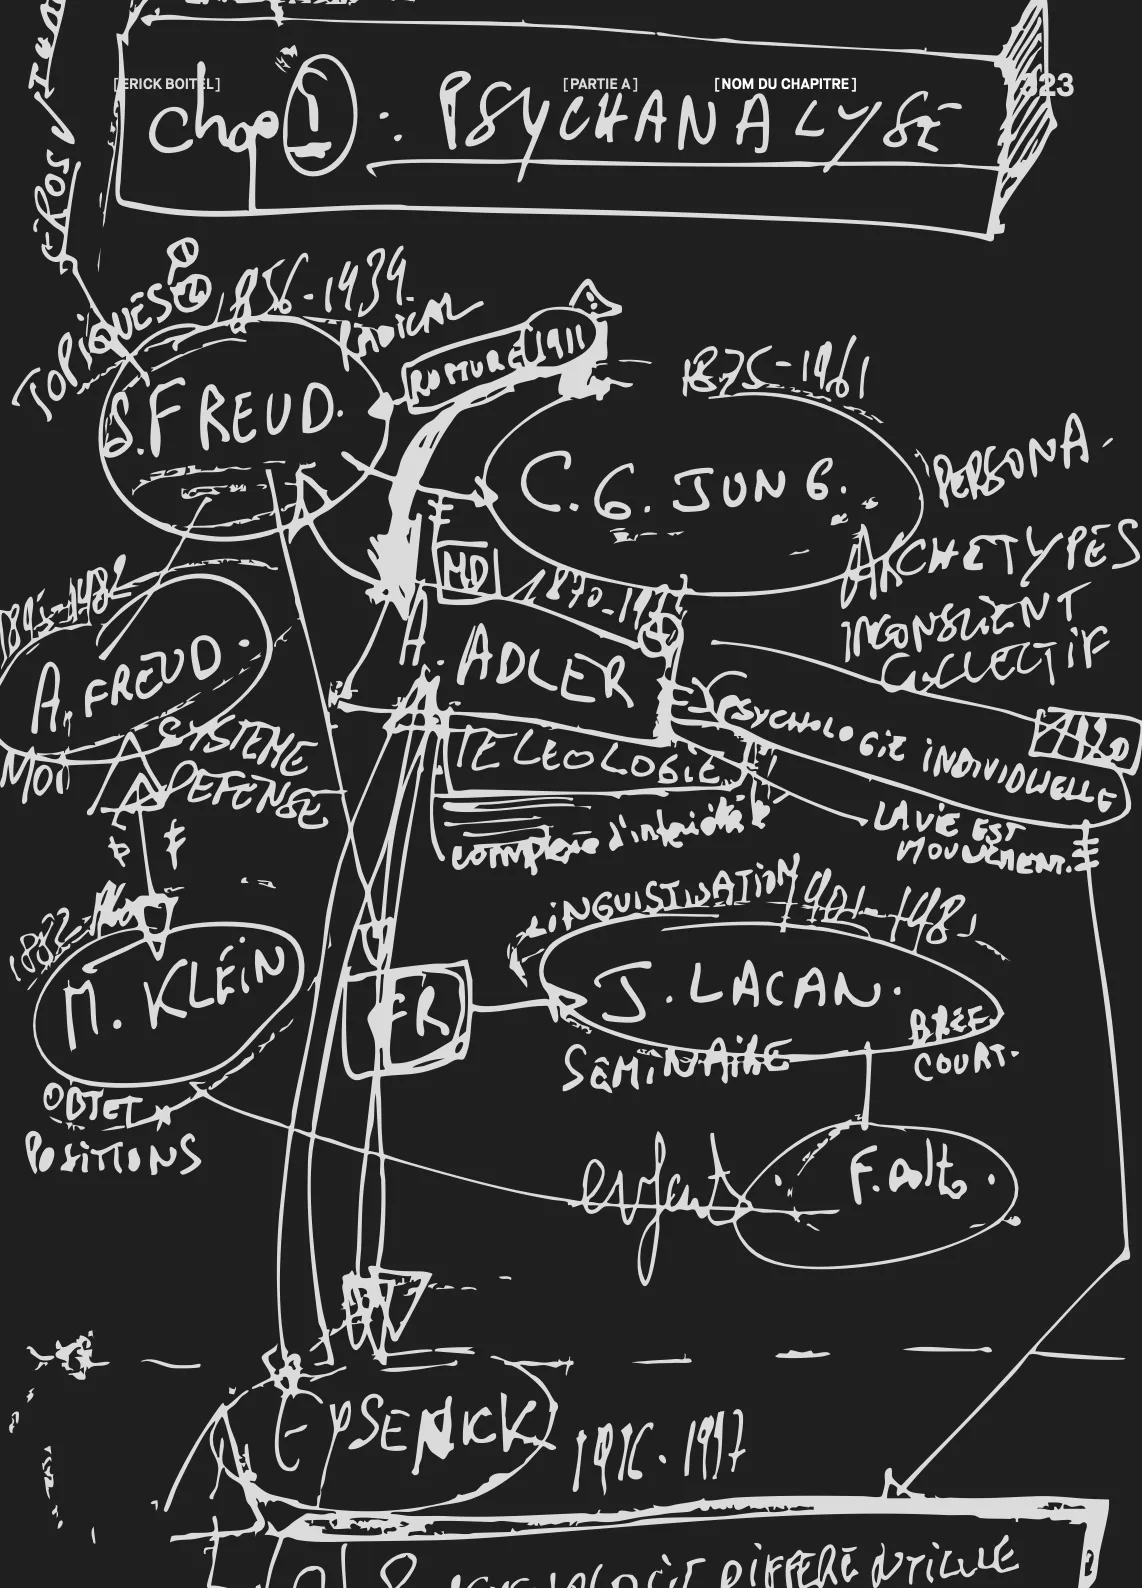 [ERICK BOITEL]
[PARTIE A]
[NOM DU CHAPITRE]
323
chap 1 : PSYCHANALYSE
EROS /
TOPIQUES
1856-1939
RADICAL
S. FREUD.
RUPTURE 1911
1875-1961
C. G. JUNG.
PERSONA
ARCHETYPES
INCONSCIENT
COLLECTIF
MD
A. ADLER
A. FREUD
SYSTEME
DEFENSE
MOI
TELEOLOGIE
PSYCHOLOGIE INDIVIDUELLE
LA VIE EST
MOUVEMENT.
complexe d'inferiorité
1882-1960
M. KLEIN
OBJET
POSITIONS
LINGUISTISATION
1901-1981
FR
J. LACAN.
SEMINAIRE
COURT.
enfant
F. Dolto.
EYSENCK
1916-1997
PSYCHOLOGIE DIFFERENTIELLE